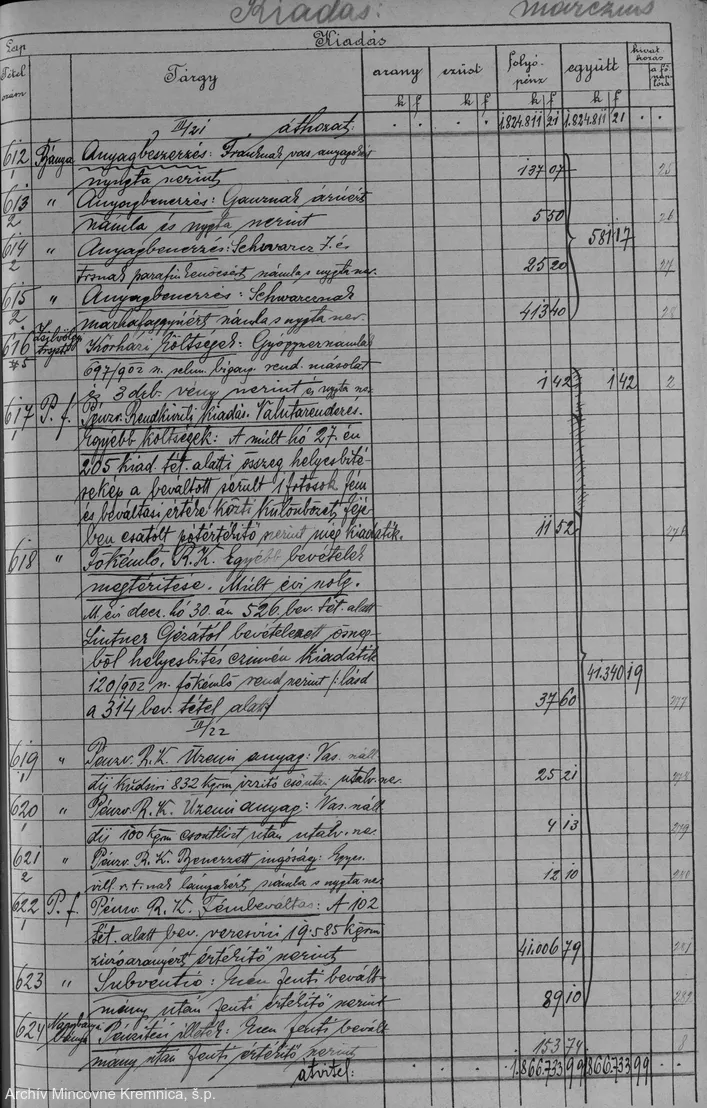 Kiadás: marczius
Lap
Tétel szám
Kiadás
Tárgy
arany
ezüst
folyó-pénz
együtt
hivat
kozás
a fő-
k f k f k f k f
III/21 áthozat: 1.824.811 21 1.824.811 21
612 Bánya Anyagbeszerzés: Franknak vas anyagokért
1 nyugta szerint 137 07 25
613 " Anyagbeszerzés: áruért
2 számla és nyugta szerint 5 50 26
581 17
614 " Anyagbeszerzés: Schwarcz J. és
2 paraffin kenőcsért számla s nyugta sz. 25 20 27
615 " Anyagbeszerzés: Schwarcznak
2 marhafaggyúért számla s nyugta szer. 413 40 28
616 Zsilvölgyi Kórházi költségek:
697/902 sz. rend. másolat
és 3 drb. vény szerint és nyugta sz. 1 42 1 42 2
617 P. f. Pénzv. Rendkivüli kiadás. Valutarendezés.
1 Egyébb költségek: A múlt hó 27.én
205 kiad. tét. alatti összeg helyesbité-
sekép a beváltott sérült 1 fotosok fém
és beváltási értéke közti különbözet fejé-
ben csatolt pótértékítő szerint még kiadatik. 11 52 276
618 " Főkémlő. R. K. Egyébb bevételek
megtéritése. Múlt évi szolg.
M. évi decz. hó 30.án 526. bev. tét. alatt
Lintner Gézától bevételezett összeg-
ből helyesbités czimén kiadatik
120/902 sz. főkémlő rend. szerint /: lásd 41.340 19
a 314 bev. tétel alatt 37 60 277
III/22
619 " Pénzv. R. K. Üzemi anyag: Vas. száll.
1 dij 832 kgrm utalv. sz. 25 21 278
620 " Pénzv. R. K. Üzemi anyag: Vas. száll.
1 dij 100 kgrm csontliszt után utalv. sz. 4 13 279
621 " Pénzv. R. K. Beszerzett ingóság: Egyes.
2 vill. r. t.-nak lámpákért számla s nyugta sz. 12 10 280
622 P. f. Pénzv. R. K. Fémbeváltás: A 102
1 tét. alatt bev. veresvizi 19.585 kgrm
értékítő szerint 41.006 79 281
623 " Subventio: Ezen fenti bevált-
mány után fenti értékitő szerint 89 10 282
624 Nagybányai bánya Pénzverési illeték: Ezen fenti bevált
mány után fenti értékitő szerint 153 74 8
átvitel: 1.866.733 99 1.866.733 99
Archív Mincovne Kremnica, š.p.